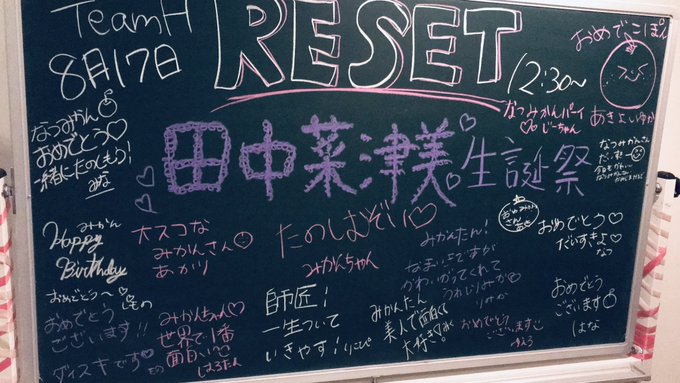 TeamH
RESET
8月17日
12:30~
おめでこぽん
なつみかんパーイ
じーちゃん
なつみかん
おめでとう♡
一緒にたのしもう!
田中菜津美
生誕祭
なつみかんさん
みかん
Happy
Birthday
大スコな
みかんさん
あかり
たのしむぞい♡
みかんちゃん
みかんたん!
なまいきですが
かわいがってくれて
うれしいみか
りみか
おめでとう♡
だいすきよ♡
なつ
おめでと〜
しもの
おめでとう
ございます!!
ダイスキです
みかんちゃん♡
世界で1番
面白い
はるたん
師匠!
一生ついて
いきやす!りこぴ
みかんたん
美人で面白くて
大好き
おめでとう
ございます
ゆうう
おめでとう
ございます
はな